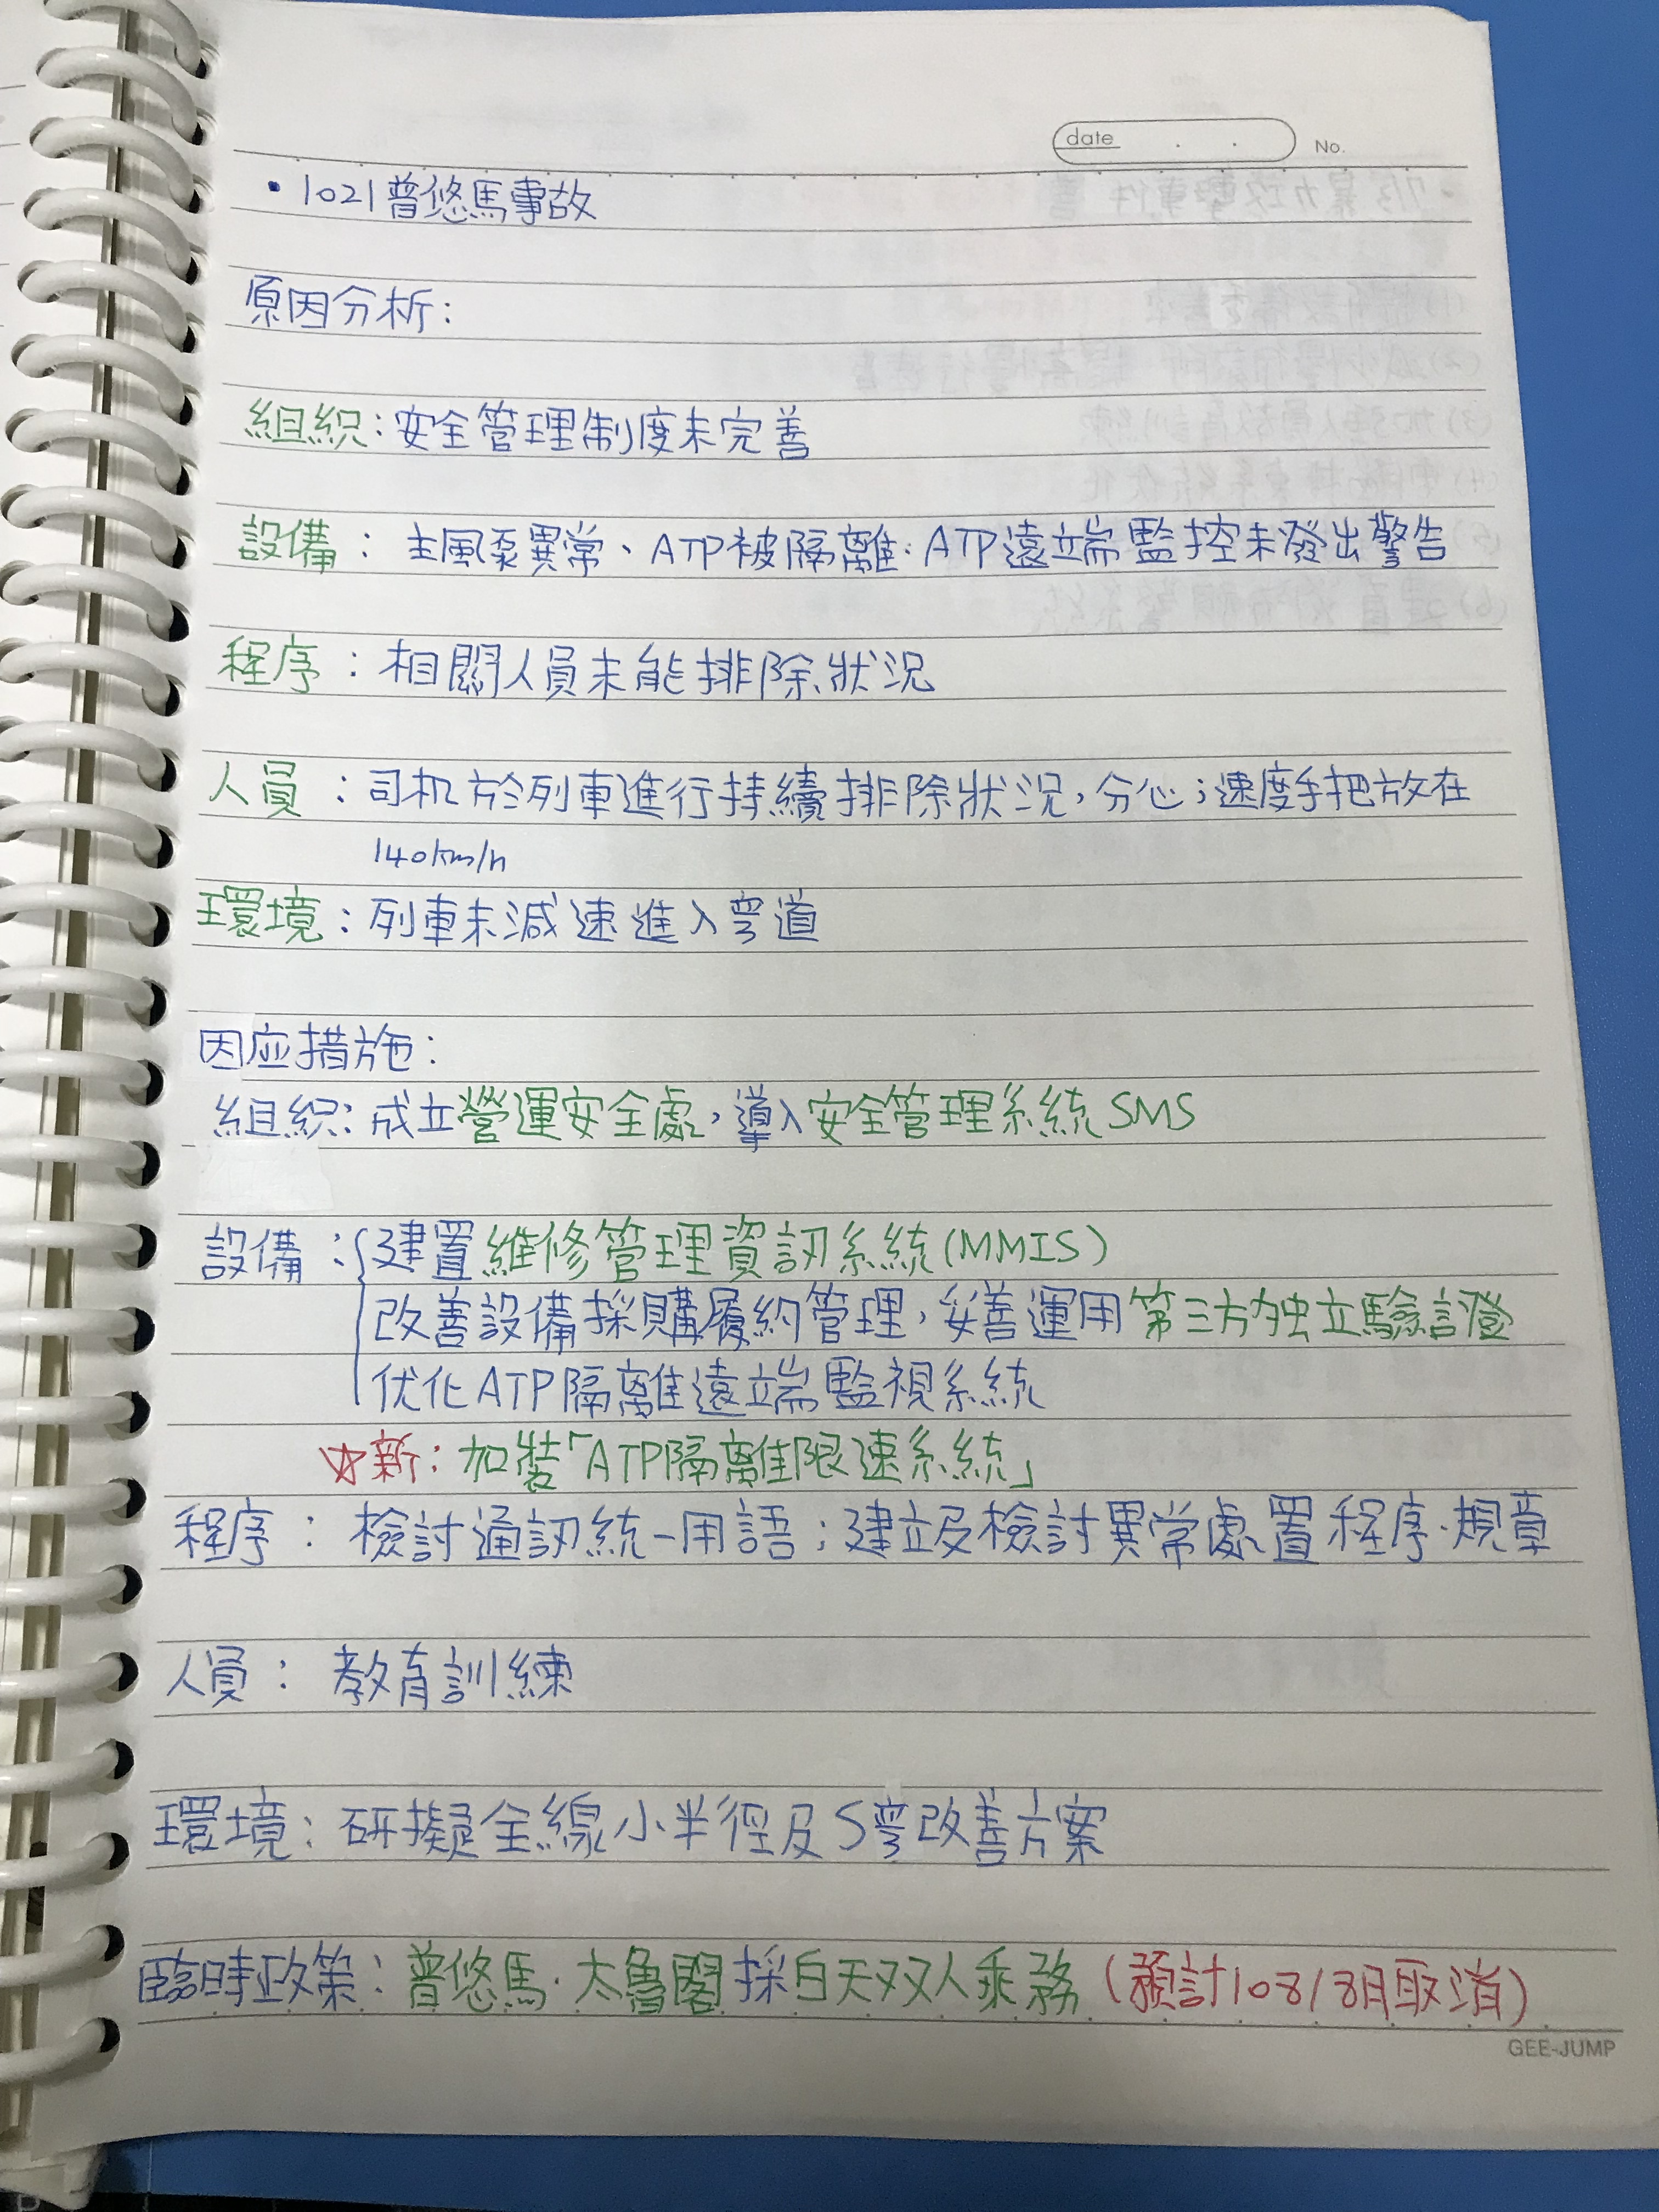 date . .
No.
• 1021普悠馬事故
原因分析:
組織:安全管理制度未完善
設備:主風泵異常、ATP被隔離.ATP遠端監控未發出警告
程序:相關人員未能排除狀況
人員:司机於列車進行持續排除狀況,分心;速度手把放在
140km/h
環境:列車未減速進入彎道
因应措施:
組織:成立營運安全處,導入安全管理系統SMS
設備:建置維修管理資訊系統(MMIS)
改善設備採購履約管理,妥善運用第三方独立驗證
优化ATP隔離遠端監視系統
☆新:加裝「ATP隔離限速系統」
程序:檢討通訊統一用語;建立及檢討異常處置程序.規章
人員:教育訓練
環境:研擬全線小半徑及S彎改善方案
臨時政策:普悠馬.太魯閣採白天双人乘務(預計108/8月取消)
GEE-JUMP